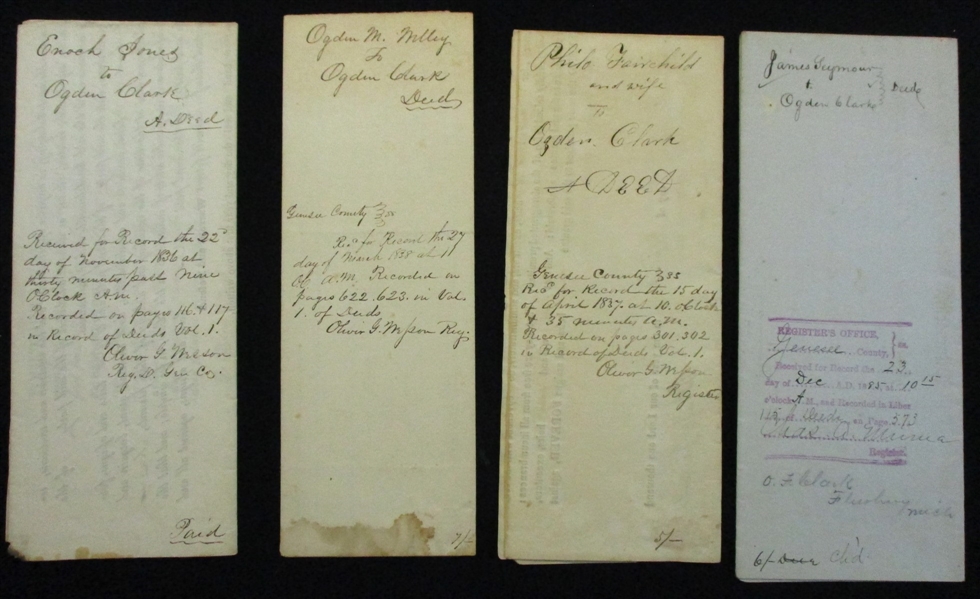 Enoch Jones
to
Ogden Clark
A. Deed
Received for Record the 22d
day of November 1836 at
thirty minutes past Nine
OClock A.m.
Recorded on pages 116 & 117
in Record of Deeds Vol. 1.
Oliver G. Wesson
Reg. D. Gen Co.
Paid
Ogden M.
To
Ogden Clark
Deed
Genesee County } ss
Recd for Record the 27
day of March 1838 at 1
OC. A.M. Recorded on
pages 622.623. in Vol.
1. of Deeds
Oliver G. Wesson Reg.
7/-
Philo Fairchild
and wife
To
Ogden. Clark
A DEED
Genesee County } ss
Recd for Record the 15 day
of April 1837. at 10. oClock
& 35 minutes A.M.
Recorded on pages 301.302
in Record of Deeds Vol. 1.
Oliver G. Wesson
Register
5/-
James Seymour
to
Ogden Clark
Deed
REGISTER'S OFFICE,
Genesee County, } ss.
Received for Record the 23
day of Dec A.D. 1885 at 10 15
o'clock A.M., and Recorded in Liber
125 of Deeds on Page 573
Register.
O. F. Clark
Flushing
Mich
6/- Due Ch'd